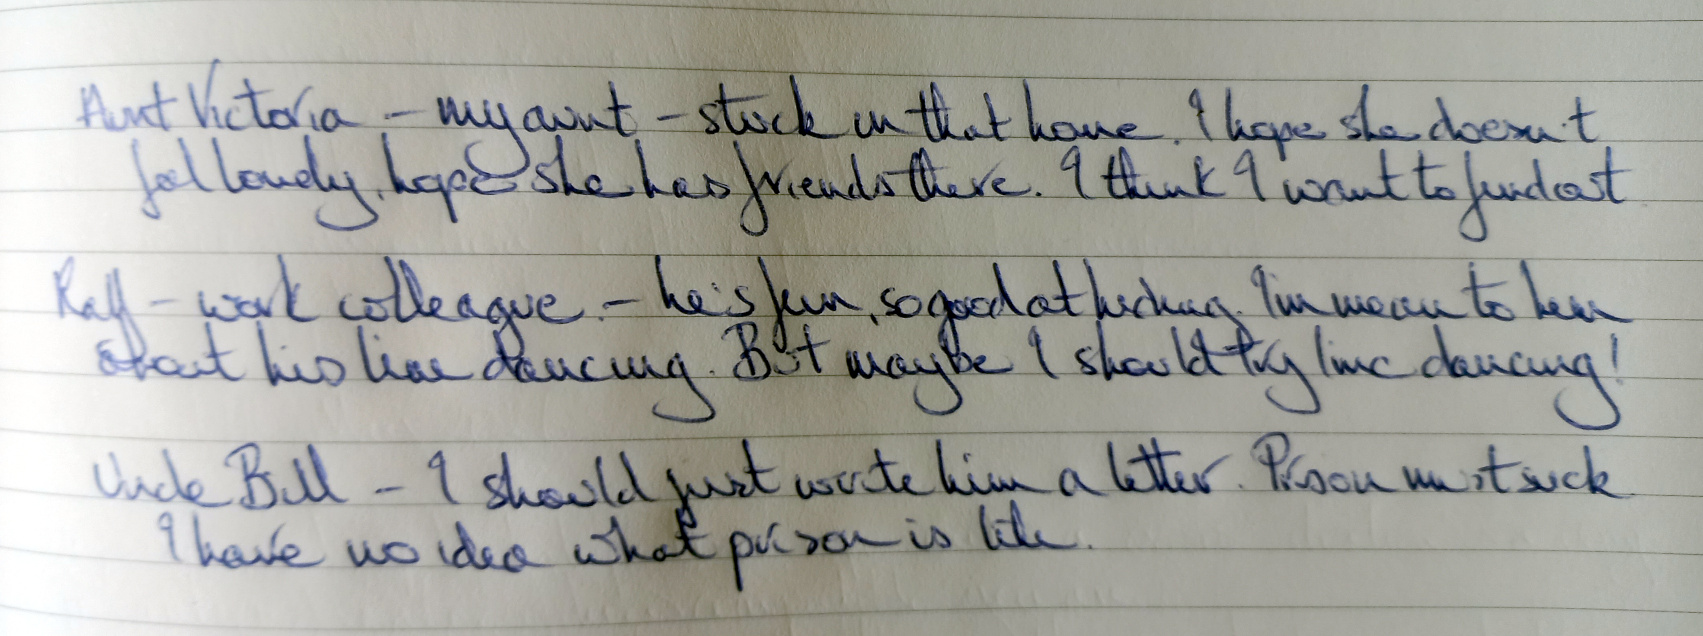 Aunt Victoria - my aunt - stuck in that home. I hope she doesn't
feel lonely, hope she has friends there. I think I want to find out
Raff - work colleague. - he's fun, so good at hiking. I'm mean to him
about his line dancing. But maybe I should try line dancing!
Uncle Bill - I should just write him a letter. Prison must suck
I have no idea what prison is like.